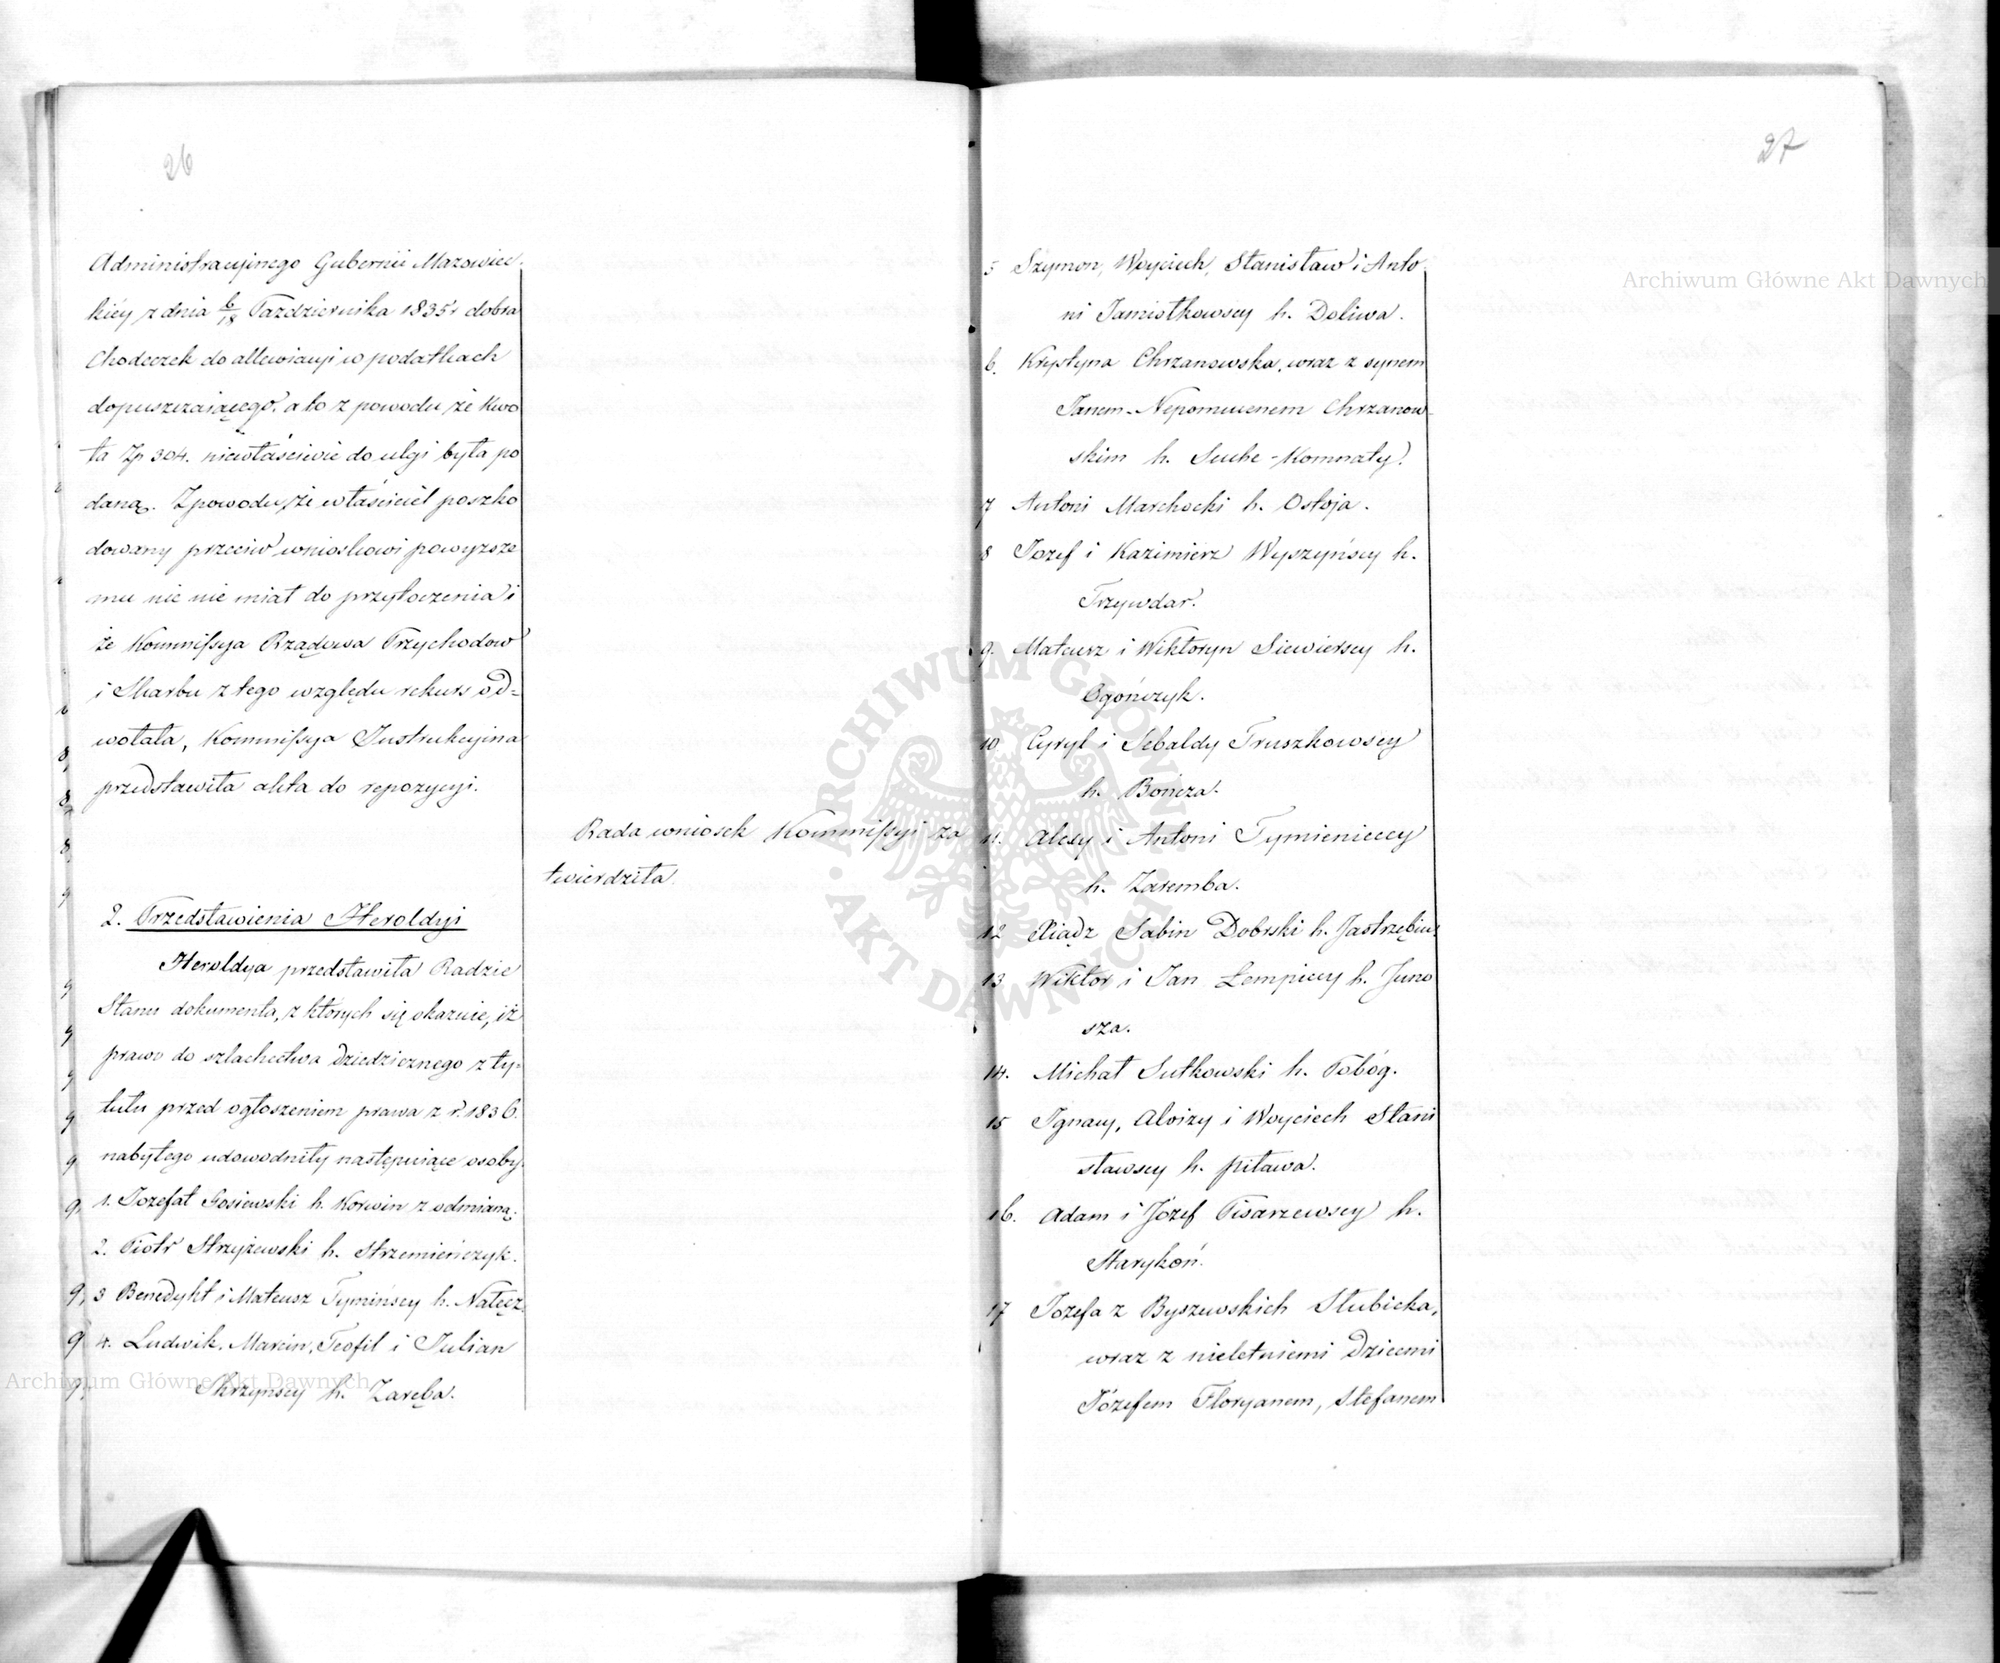 26
Administracyjnego Gubernii Mazowiec
kiéy z dnia 6/18 Października 1835 r dobra
Chodeczek do allewiacyi w podatkach
dopuszczaiącego, a to z powodu, że kwo
ta Zp 304. niewłaściwie do ulgi była po
daną. Z powodu, że właściciel poszko
dowany przeciw wnioskowi powyższe
mu nic nie miał do przytoczenia i
że Kommissya Rządowa Przychodów
i Skarbu z tego względu rekurs od=
wołała, Kommissya Instrukcyjna
przedstawiła akta do repozycyi.
Rada wniosek Kommissyi za
twierdziła.
2. Przedstawienia Heroldyi
Heroldya przedstawiła Radzie
Stanu dokumenta, z których się okazuie, iż
prawo do szlachectwa dziedzicznego z ty=
tułu przed ogłoszeniem prawa z r. 1836.
nabytego udowodniły następuiące osoby.
1. Jozefat Gosiewski h. Korwin z odmianą.
2. Piotr Strzyżewski h. Strzemieńczyk.
3 Benedykt i Mateusz Tymińscy h. Nałęcz.
4. Ludwik, Marcin, Teofil i Julian
Skrzyńscy h. Zaręba.
27
5 Szymon, Woyciech, Stanisław i Anto
ni Jamiołkowscy h. Doliwa.
6. Krystyna Chrzanowska, wraz z synem
Janem-Nepomucenem Chrzanow-
skim h. Suche-Komnaty.
7 Antoni Marchocki h. Ostoja.
8 Jozef i Kazimierz Wyszyńscy h.
Trzywdar.
9. Mateusz i Wiktoryn Siewierscy h.
Ogończyk.
10 Cyryl i Sebaldy Truszkowscy
h. Bończa.
11. Alexy i Antoni Tymienieccy
h. Zaremba.
12 Xiądz Sabin Dobrski h. Jastrzębiec
13 Wiktor i Jan Łempiccy h. Juno
sza.
14. Michał Sutkowski h. Pobóg.
15 Ignacy, Aloizy i Woyciech Stani
sławscy h. Pilawa.
16. Adam i Józef Pisarzewscy h.
Starykoń.
17 Jozefa z Byszewskich Słubicka,
wraz z nieletniemi dziećmi
Józefem Floryanem, Stefanem
Archiwum Główne Akt Dawnych
Archiwum Główne Akt Dawnych
ARCHIWUM GŁÓWNE AKT DAWNYCH